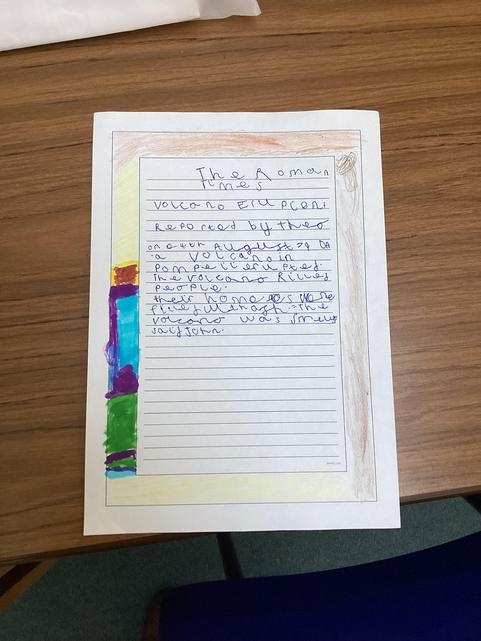 The Roman
Times
Volcano Eruption!
Reported by theo
on 24th August 79 DA
a Volcano in
Pompeii erupted.
The volcano killed
people.
their homes were
full of ash. The
volcano was smelly
said John.